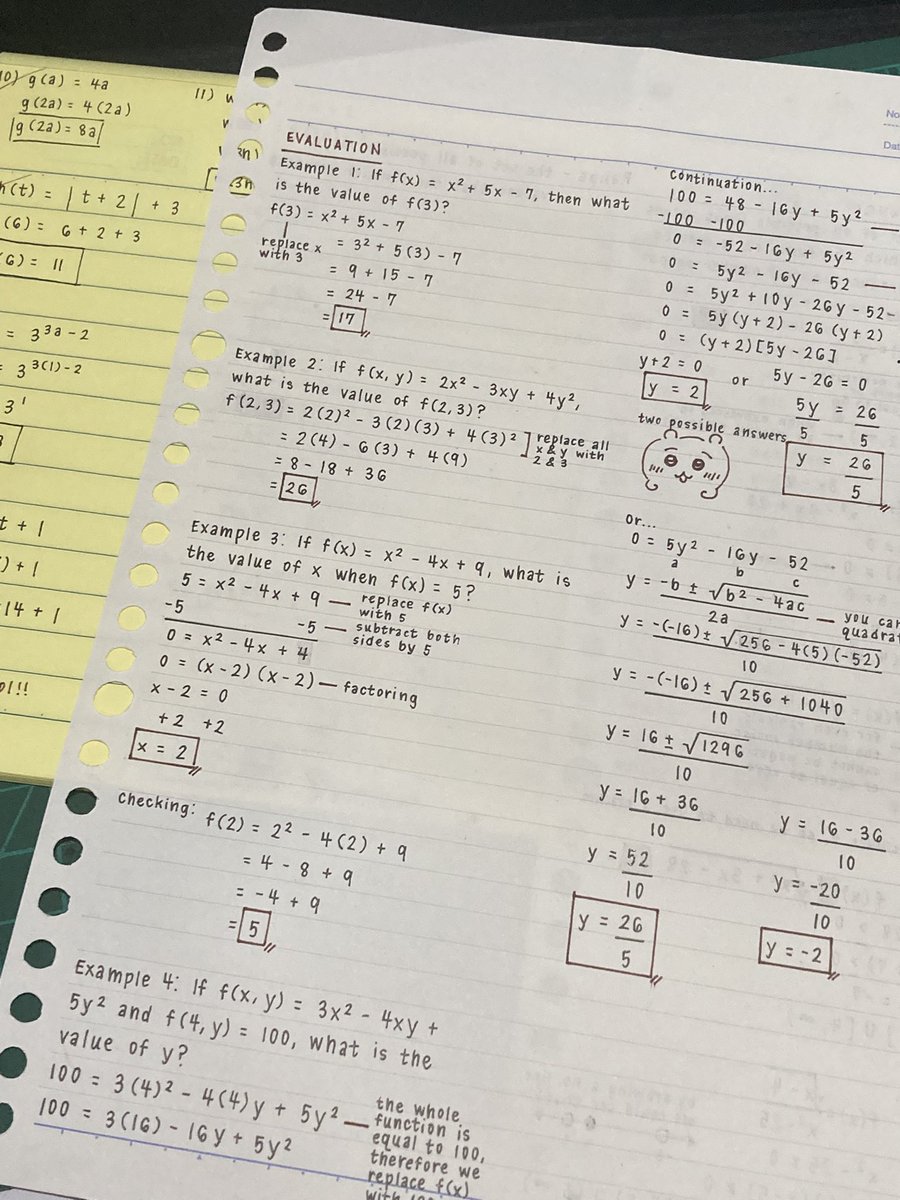 10) g(a) = 4a
g(2a) = 4(2a)
g(2a) = 8a
11)
3n)
(3n
h(t) = |t + 2| + 3
(6) = 6 + 2 + 3
(6) = 11
= 3^(3a - 2)
= 3^(3(1) - 2)
3¹
t + 1
) + 1
14 + 1
No
Dat
EVALUATION
Example 1: If f(x) = x² + 5x - 7, then what
is the value of f(3)?
f(3) = x² + 5x - 7
replace x
with 3
= 3² + 5(3) - 7
= 9 + 15 - 7
= 24 - 7
= 17
Example 2: If f(x, y) = 2x² - 3xy + 4y²,
what is the value of f(2, 3)?
f(2, 3) = 2(2)² - 3(2)(3) + 4(3)²
replace all
x & y with
2 & 3
= 2(4) - 6(3) + 4(9)
= 8 - 18 + 36
= 26
Example 3: If f(x) = x² - 4x + 9, what is
the value of x when f(x) = 5?
5 = x² - 4x + 9 — replace f(x)
with 5
-5 -5 — subtract both
sides by 5
0 = x² - 4x + 4
0 = (x - 2)(x - 2) — factoring
x - 2 = 0
+2 +2
x = 2
Checking:
f(2) = 2² - 4(2) + 9
= 4 - 8 + 9
= -4 + 9
= 5
Example 4: If f(x, y) = 3x² - 4xy +
5y² and f(4, y) = 100, what is the
value of y?
100 = 3(4)² - 4(4)y + 5y² — the whole
function is
equal to 100,
therefore we
replace f(x)
100 = 3(16) - 16y + 5y²
Continuation...
100 = 48 - 16y + 5y² —
-100 -100
0 = -52 - 16y + 5y²
0 = 5y² - 16y - 52 —
0 = 5y² + 10y - 26y - 52 -
0 = 5y(y+2) - 26(y+2)
0 = (y+2)[5y - 26]
y+2 = 0 or 5y - 26 = 0
y = 2
5y/5 = 26/5
two possible answers
y = 26/5
or...
0 = 5y² - 16y - 52
a b c
y = -b ± √b² - 4ac / 2a — you can
quadrat
y = -(-16) ± √256 - 4(5)(-52) / 10
y = -(-16) ± √256 + 1040 / 10
y = 16 ± √1296 / 10
y = 16 + 36 / 10
y = 16 - 36 / 10
y = 52/10
y = -20/10
y = 26/5
y = -2